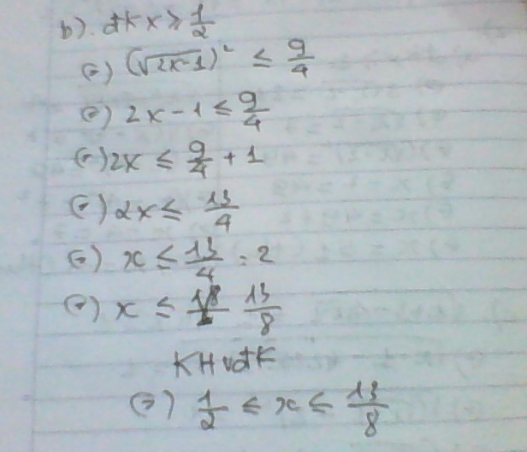 b). đk x ≥ 1/2
(=) (√2x-1)² ≤ 9/4
(=) 2x - 1 ≤ 9/4
(=) 2x ≤ 9/4 + 1
(=) 2x ≤ 13/4
(=) x ≤ 13/4 : 2
(=) x ≤ 13/8
KH vđK
(=) 1/2 ≤ x ≤ 13/8